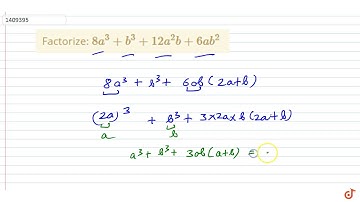 1409395
Factorize: 8a³ + b³ + 12a²b + 6ab²
8a³ + b³ + 6ab(2a+b)
(2a)³ + b³ + 3×2a×b(2a+b)
a b
a³ + b³ + 3ab(a+b) =